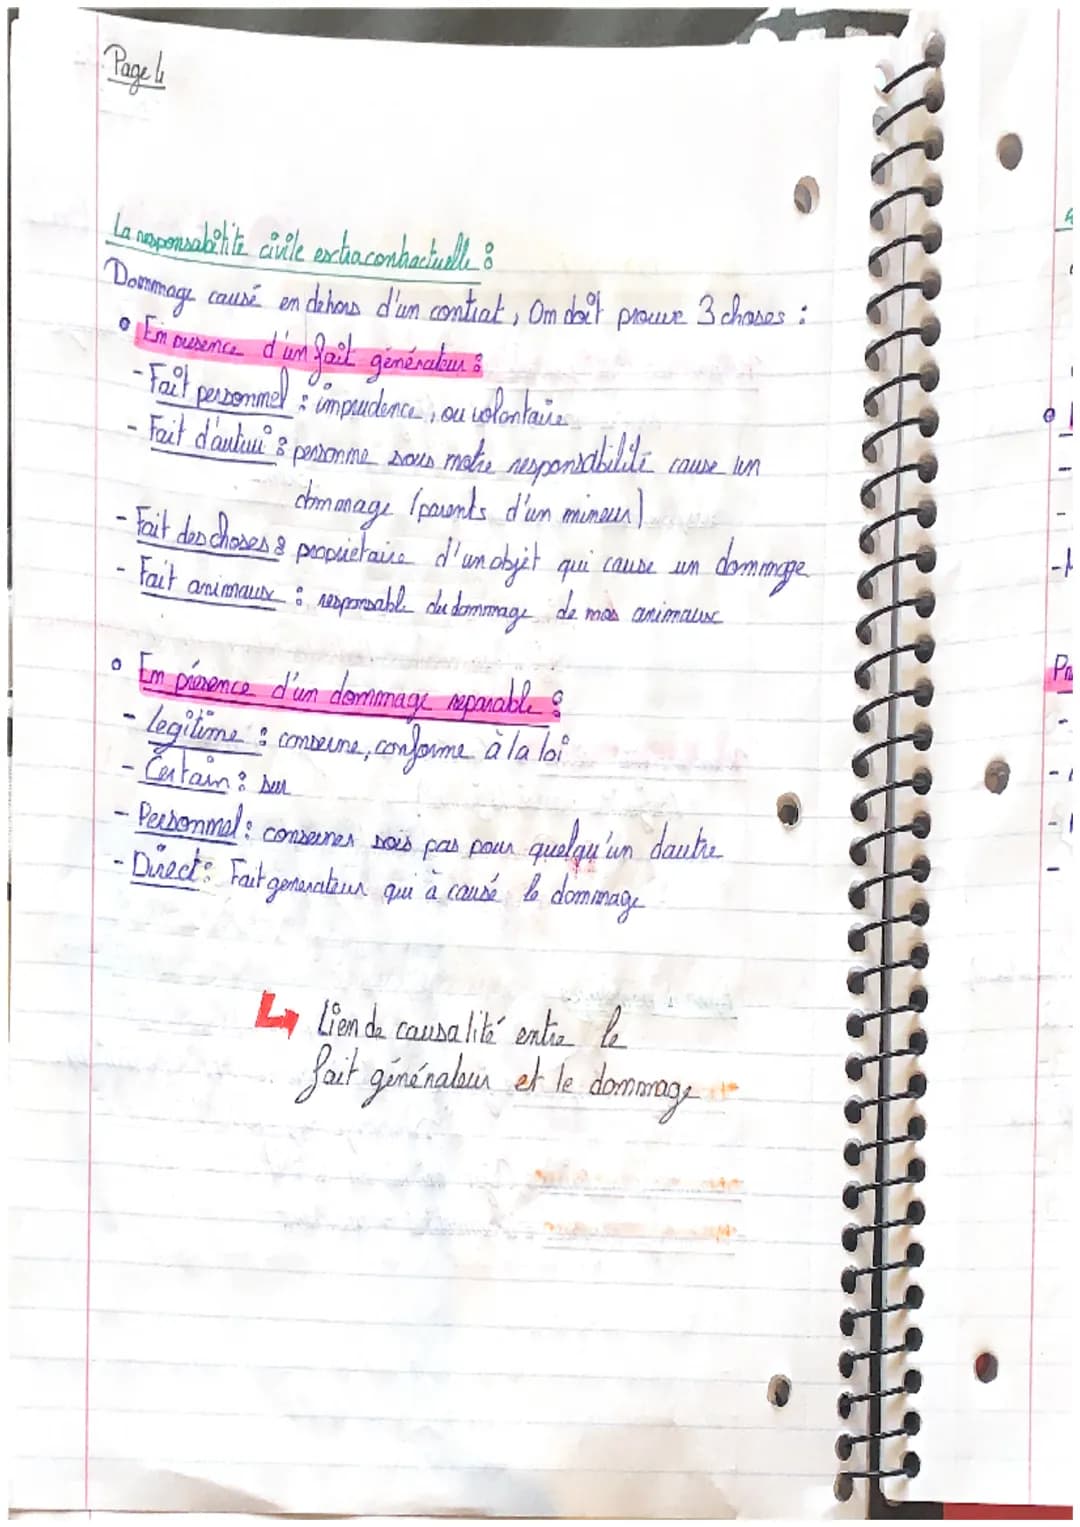 Page 4
La responsabilité civile extracontractuelle :
Dommage causé en dehors d'un contrat, On doit prouver 3 choses :
° En présence d'un fait générateur :
- Fait personnel : imprudence, ou volontaire
- Fait d'autrui : personne sous notre responsabilité cause un
dommage (parents d'un mineur)
- Fait des choses : propriétaire d'un objet qui cause un dommage
- Fait animaux : responsable du dommage de mes animaux
° En présence d'un dommage reparable :
- Legitime : , conforme à la loi
- Certain : sur
- Personnel : sois pas pour quelqu'un dautre
- Direct : Fait generateur qui à causé le dommage
↳ Lien de causalité entre le
fait générateur et le dommage